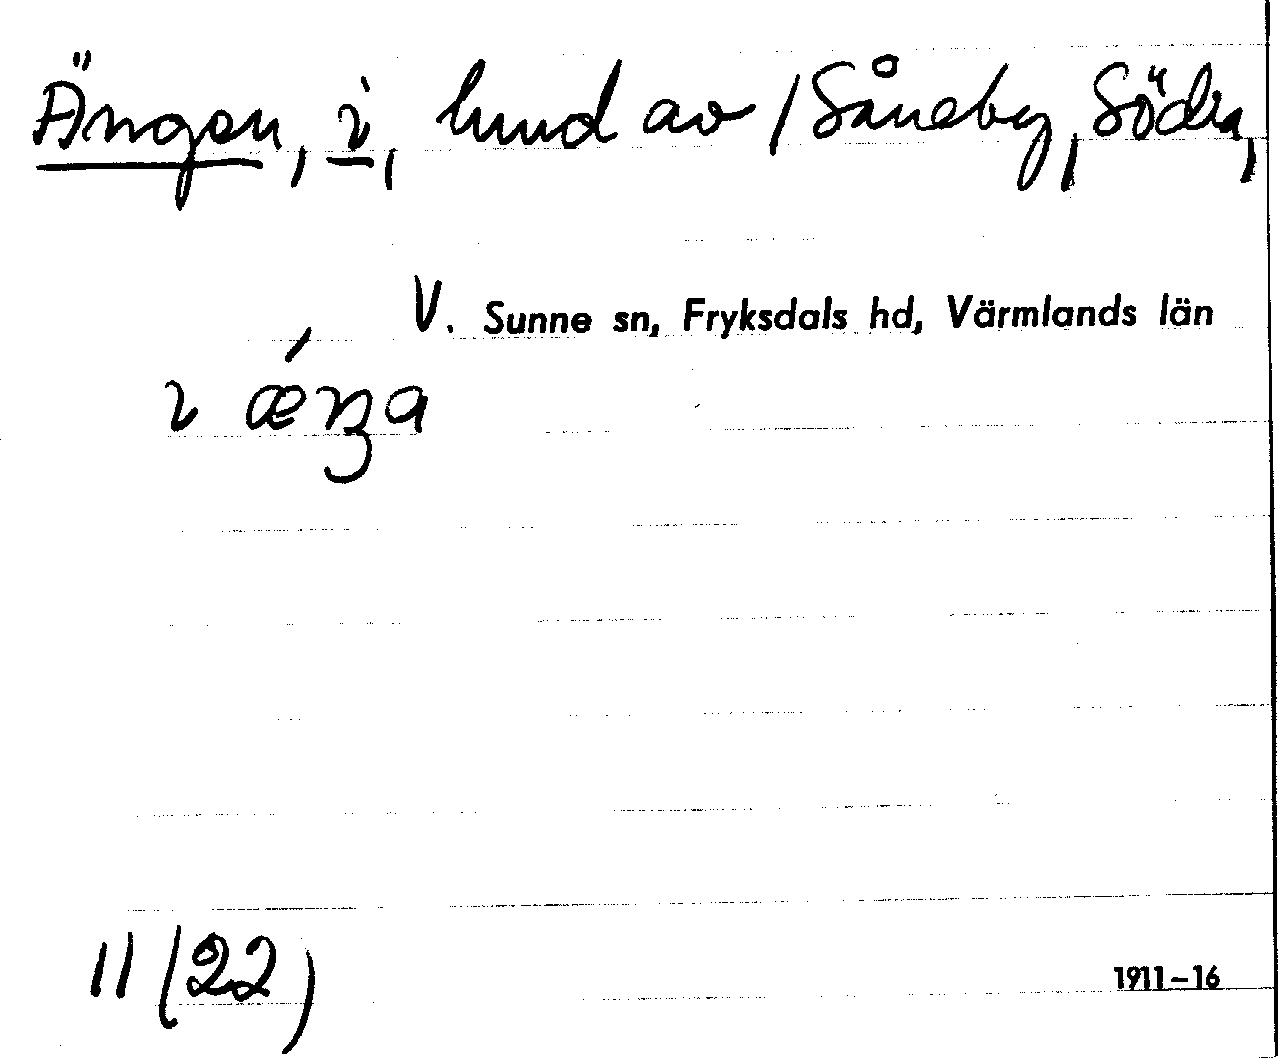 Ängen, i, hmd av / Såneby, Södra,
V. Sunne sn, Fryksdals hd, Värmlands län
ı ǽŋa
11 (22)
1911–16